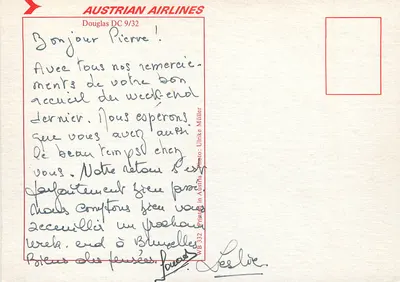 AUSTRIAN AIRLINES
Douglas DC 9/32
Bonjour Pierre!
Avec tous nos remercie-
ments de votre bon
accueil du week-end
dernier. Nous espérons
que vous avez aussi
le beau temps chez
vous. Notre retour s'est
parfaitement bien
nous comptons bien vous
accueillir un prochain
week-end à Bruxelles
Biens des pensées.
Leslie.
WB 332 Printed in Austria Ulrike Müller